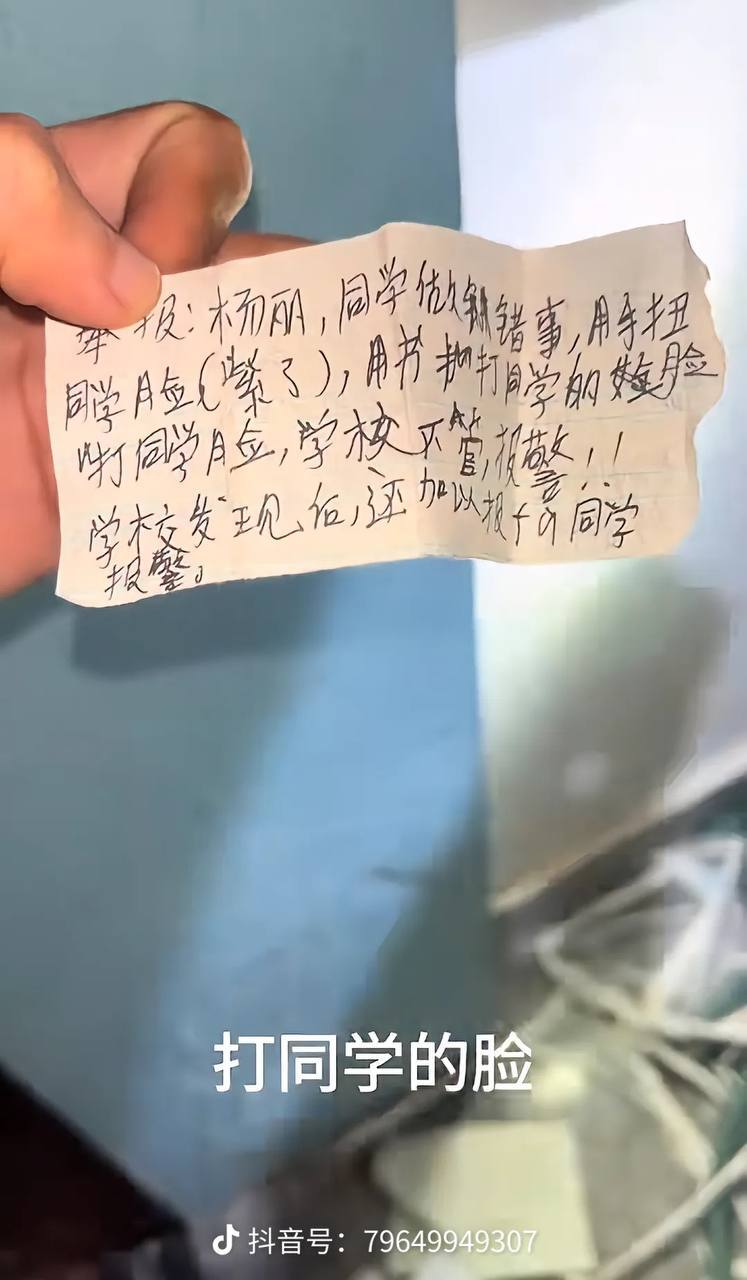 举报：杨丽，同学做错事，用手扭
同学脸(紫了)，用书打同学的脸
打同学脸，学校不管，报警！！
学校发现后，还加以报个的同学
报警。
打同学的脸
抖音号：79649949307